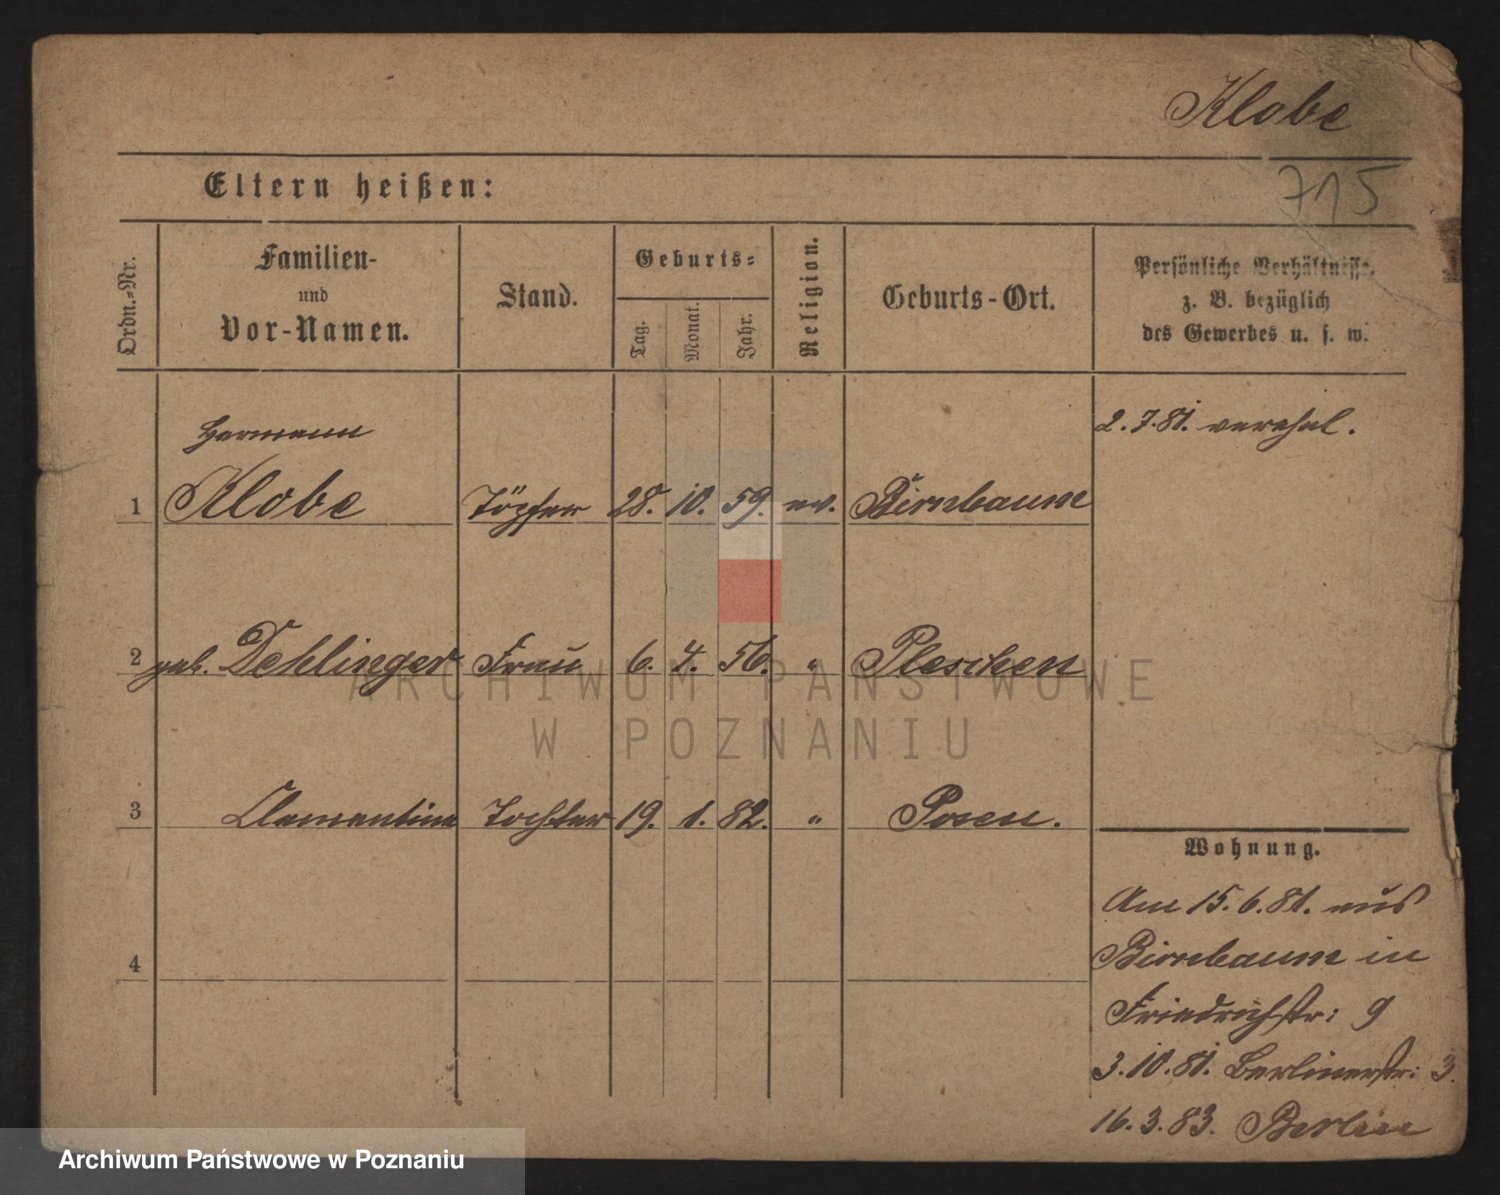 Klobe
715
Eltern heißen:
Ordn.-Nr.
Familien-
und
Vor-Namen.
Stand.
Geburts-
Tag.
Monat.
Jahr.
Religion.
Geburts-Ort.
Persönliche Verhältnisse,
z. B. bezüglich
des Gewerbes u. s. w.
2.7.81. verehel.
Hermann
1 Klobe Töpfer 28. 10. 59. ev. Birnbaum
2 geb. Dehlinger Frau 6. 4. 56. " Pleschen
ARCHIWUM PAŃSTWOWE
W POZNANIU
3 Clementine Tochter 19. 1. 82. " Posen.
Wohnung.
Am 15.6.81. aus
Birnbaum in
4
Friedrichstr: 9
3.10.81. Berlinerstr: 3.
16.3.83. Berlin
Archiwum Państwowe w Poznaniu